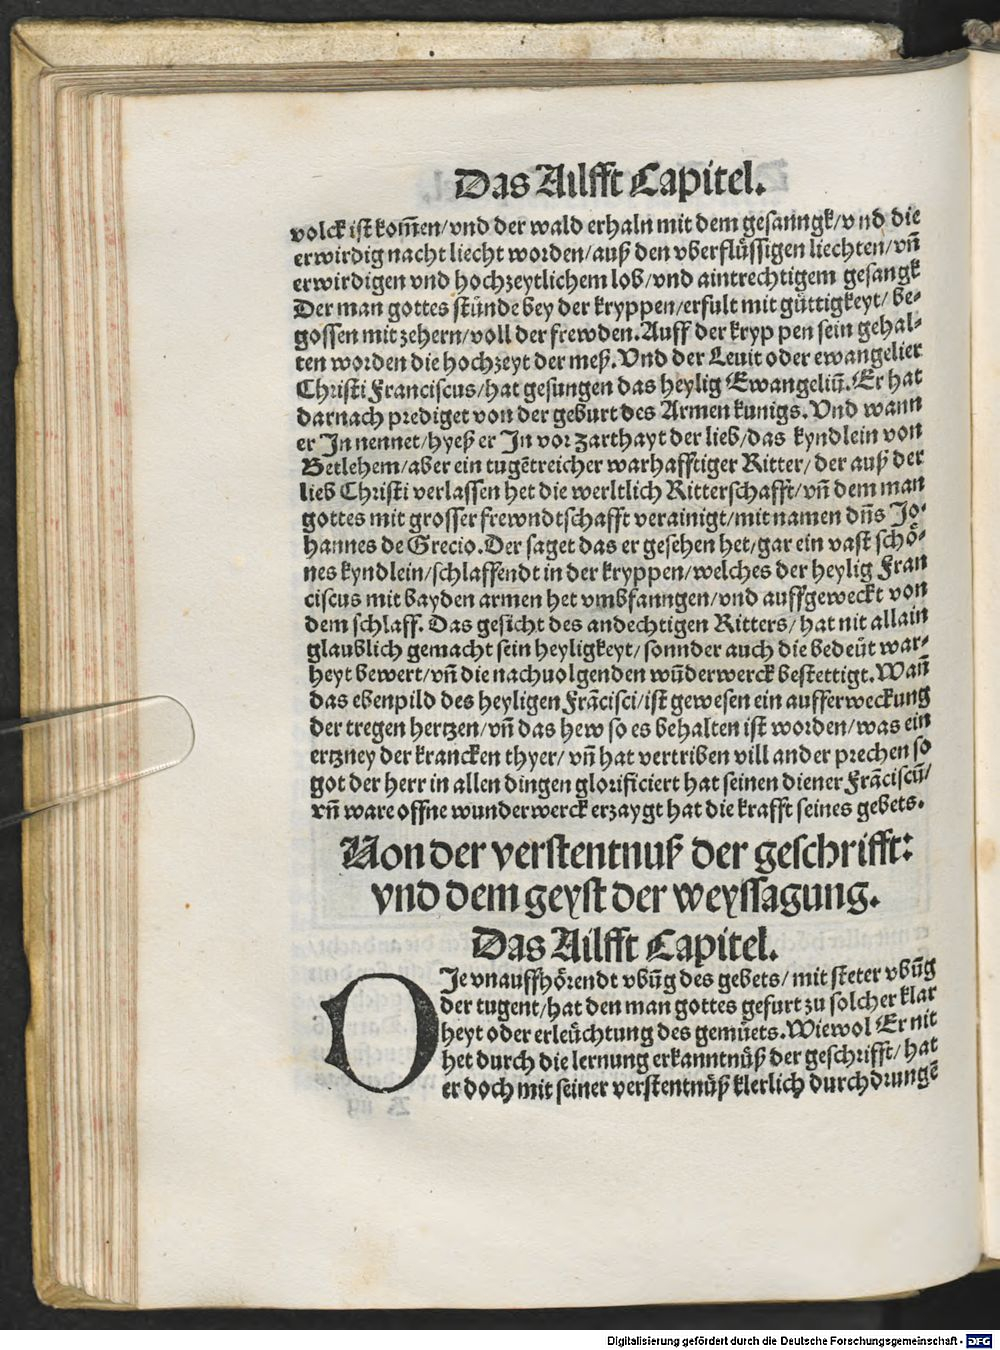 Das Ailfft Capitel.
volck ist kom̃en/vnd der wald erhaln mit dem gesanngk/vnd die
erwirdig nacht liecht worden/auß den vberflüssigen liechten/vñ
erwirdigen vnd hochzeytlichem lob/vnd aintrechtigem gesangk
Der man gottes stünde bey der kryppen/erfult mit güttigkeyt/ be⸗
gossen mit zehern/voll der frewden. Auff der kryppen sein gehal⸗
ten worden die hochzeyt der meß. Vnd der Leuit oder ewangelier
Christi Franciscus/hat gesungen das heylig Ewangeliũ. Er hat
darnach prediget von der geburt des Armen kunigs. Vnd wann
er Jn nennet/hyeß er Jn vor zarthayt der lieb/das kyndlein von
Betlehem/aber ein tugẽtreicher warhafftiger Ritter/ der auß der
lieb Christi verlassen het die werltlich Ritterschafft/vñ dem man
gottes mit grosser frewndtschafft verainigt/mit namen dñs Jo⸗
hannes de Grecio. Der saget das er gesehen het/gar ein vast schö⸗
nes kyndlein/schlaffendt in der kryppen/welches der heylig Fran
ciscus mit bayden armen het vmbfanngen/vnd auffgeweckt von
dem schlaff. Das gesicht des andechtigen Ritters/ hat nit allain
glaublich gemacht sein heyligkeyt/ sonnder auch die bedeüt war⸗
heyt bewert/vñ die nachuolgenden wũderwerck bestettigt. Wañ
das ebenpild des heyligen Frãcisci/ist gewesen ein aufferweckung
der tregen hertzen/vñ das hew so es behalten ist worden/was ein
ertzney der krancken thyer/ vñ hat vertriben vill ander prechen so
got der herr in allen dingen glorificiert hat seinen diener Frãciscũ/
vñ ware offne wunderwerck erzaygt hat die krafft seines gebets.
Von der verstentnuß der geschrifft:
vnd dem geyst der weyssagung.
Das Ailfft Capitel.
DJe vnauffhörendt vbũg des gebets/ mit steter vbũg
der tugent/hat den man gottes gefurt zu solcher klar
heyt oder erleüchtung des gemüets. Wiewol Er nit
het durch die lernung erkanntnüß der geschrifft/ hat
er doch mit seiner verstentnüß klerlich durchdrungẽ
Digitalisierung gefördert durch die Deutsche Forschungsgemeinschaft - DFG